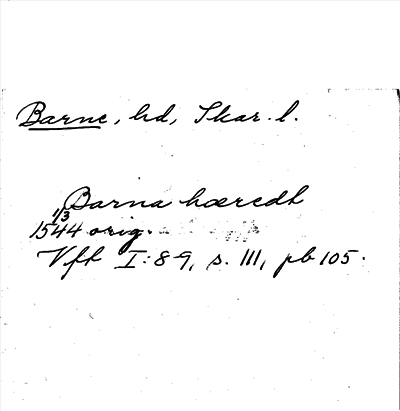 Barne, hd, Skar. l.
Barna hæredh
1/3
1544 orig.
Vfh I:8-9, s. 111, pb 105.